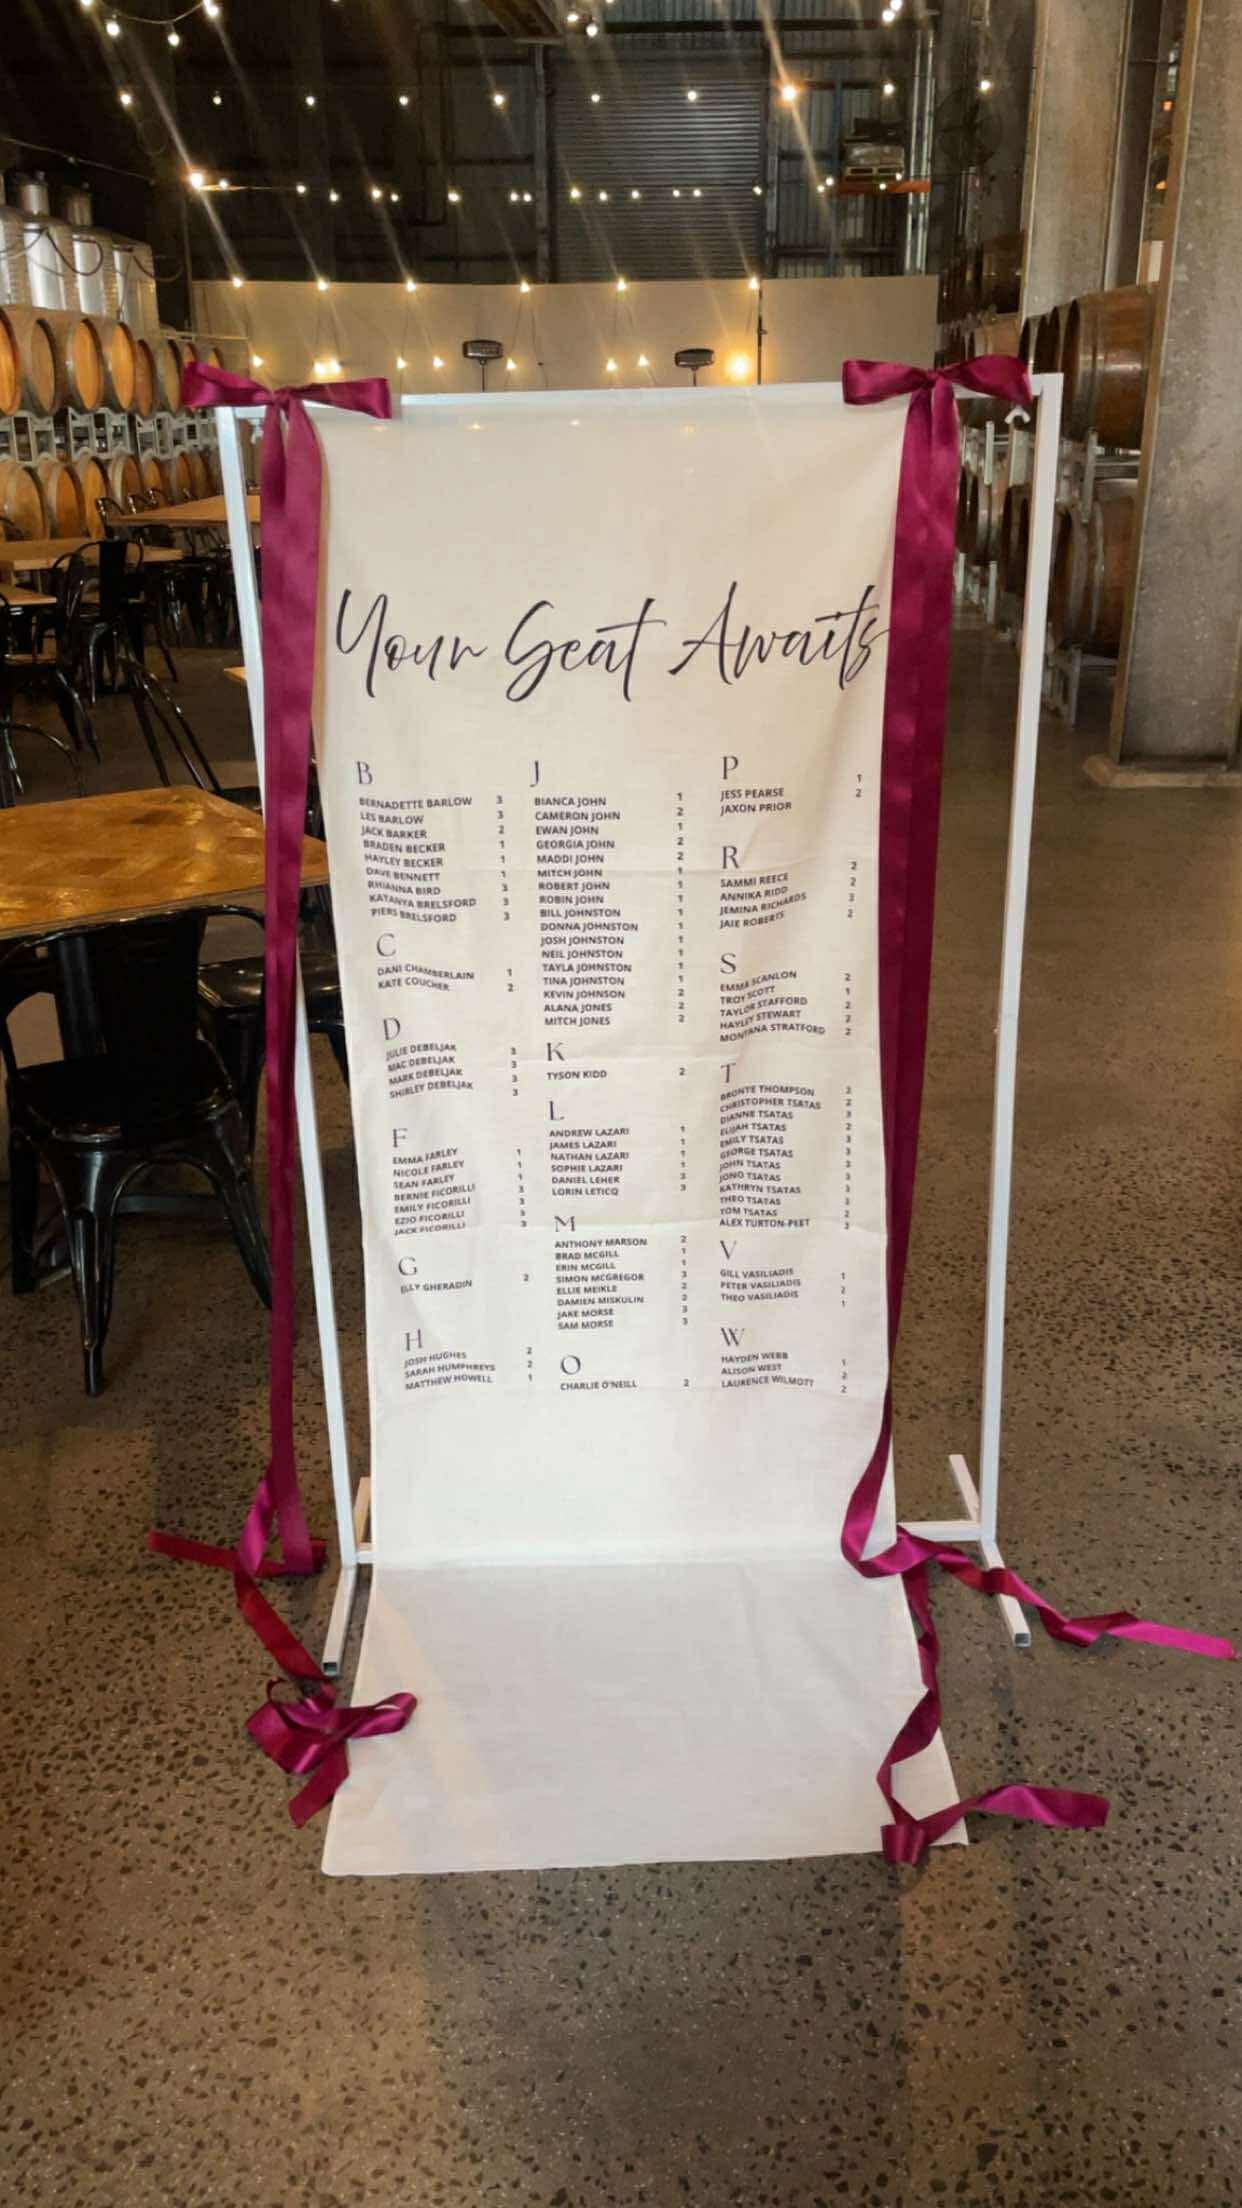 Your Seat Awaits
B
BERNADETTE BARLOW 3
LES BARLOW 3
JACK BARKER 2
BRADEN BECKER 1
HAYLEY BECKER 1
DAVE BENNETT 1
RHIANNA BIRD 3
KATANYA BRELSFORD 3
PIERS BRELSFORD 3
C
DANI CHAMBERLAIN 1
KATE COUCHER 2
D
JULIE DEBELJAK 3
MAC DEBELJAK 3
MARK DEBELJAK 3
SHIRLEY DEBELJAK 3
F
EMMA FARLEY 1
NICOLE FARLEY 1
SEAN FARLEY 1
BERNIE FICORILLI 3
EMILY FICORILLI 3
EZIO FICORILLI 3
JACK FICORILLI 3
G
ELLY GHERADIN 2
H
JOSH HUGHES 2
SARAH HUMPHREYS 2
MATTHEW HOWELL 1
J
BIANCA JOHN 1
CAMERON JOHN 2
EWAN JOHN 1
GEORGIA JOHN 2
MADDI JOHN 2
MITCH JOHN 1
ROBERT JOHN 1
ROBIN JOHN 1
BILL JOHNSTON 1
DONNA JOHNSTON 1
JOSH JOHNSTON 1
NEIL JOHNSTON 1
TAYLA JOHNSTON 1
TINA JOHNSTON 1
KEVIN JOHNSON 2
ALANA JONES 2
MITCH JONES 2
K
TYSON KIDD 2
L
ANDREW LAZARI 1
JAMES LAZARI 1
NATHAN LAZARI 1
SOPHIE LAZARI 1
DANIEL LEHER 3
LORIN LETICQ 3
M
ANTHONY MARSON 2
BRAD MCGILL 1
ERIN MCGILL 1
SIMON MCGREGOR 3
ELLIE MEIKLE 2
DAMIEN MISKULIN 2
JAKE MORSE 3
SAM MORSE 3
O
CHARLIE O'NEILL 2
P
JESS PEARSE 1
JAXON PRIOR 2
R
SAMMI REECE 2
ANNIKA RIDD 2
JEMINA RICHARDS 3
JAIE ROBERTS 2
S
EMMA SCANLON 2
TROY SCOTT 1
TAYLOR STAFFORD 2
HAYLEY STEWART 2
MONTANA STRATFORD 2
T
BRONTE THOMPSON
CHRISTOPHER TSATAS 2
DIANNE TSATAS 3
ELIJAH TSATAS 2
EMILY TSATAS 3
GEORGE TSATAS 3
JOHN TSATAS 3
JONO TSATAS 3
KATHRYN TSATAS 3
THEO TSATAS 3
TOM TSATAS 2
ALEX TURTON-PEET
V
GILL VASILIADIS 1
PETER VASILIADIS
THEO VASILIADIS 1
W
HAYDEN WEBB 1
ALISON WEST 2
LAURENCE WILMOTT 2